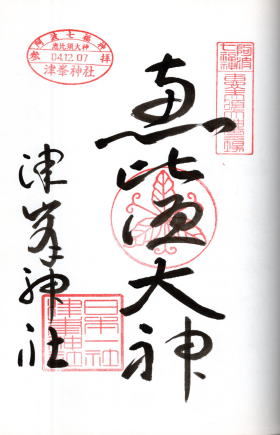 阿波七福神
恵比須大神
参拝
04.12.07
津峯神社
阿波
七福神
恵比須大神
津峯神社
日本一社
津峯神社